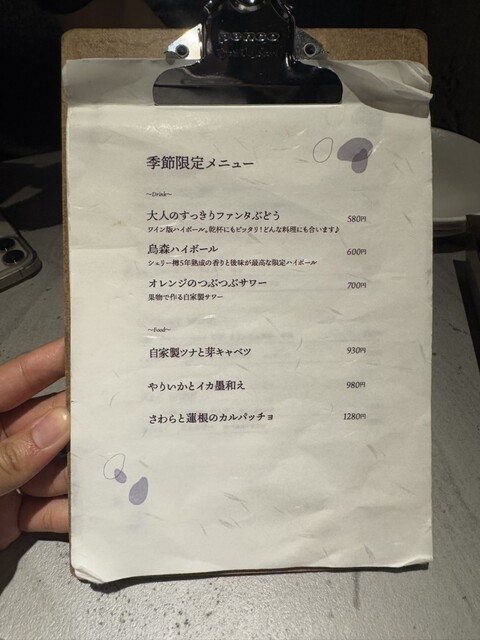 penco
季節限定メニュー
~Drink~
大人のすっきりファンタぶどう 580円
ワイン版ハイボール。乾杯にもピッタリ!どんな料理にも合います♪
烏森ハイボール 600円
シェリー樽5年熟成の香りと後味が最高な限定ハイボール
オレンジのつぶつぶサワー 700円
果物で作る自家製サワー
~Food~
自家製ツナと芽キャベツ 930円
やりいかとイカ墨和え 980円
さわらと蓮根のカルパッチョ 1280円